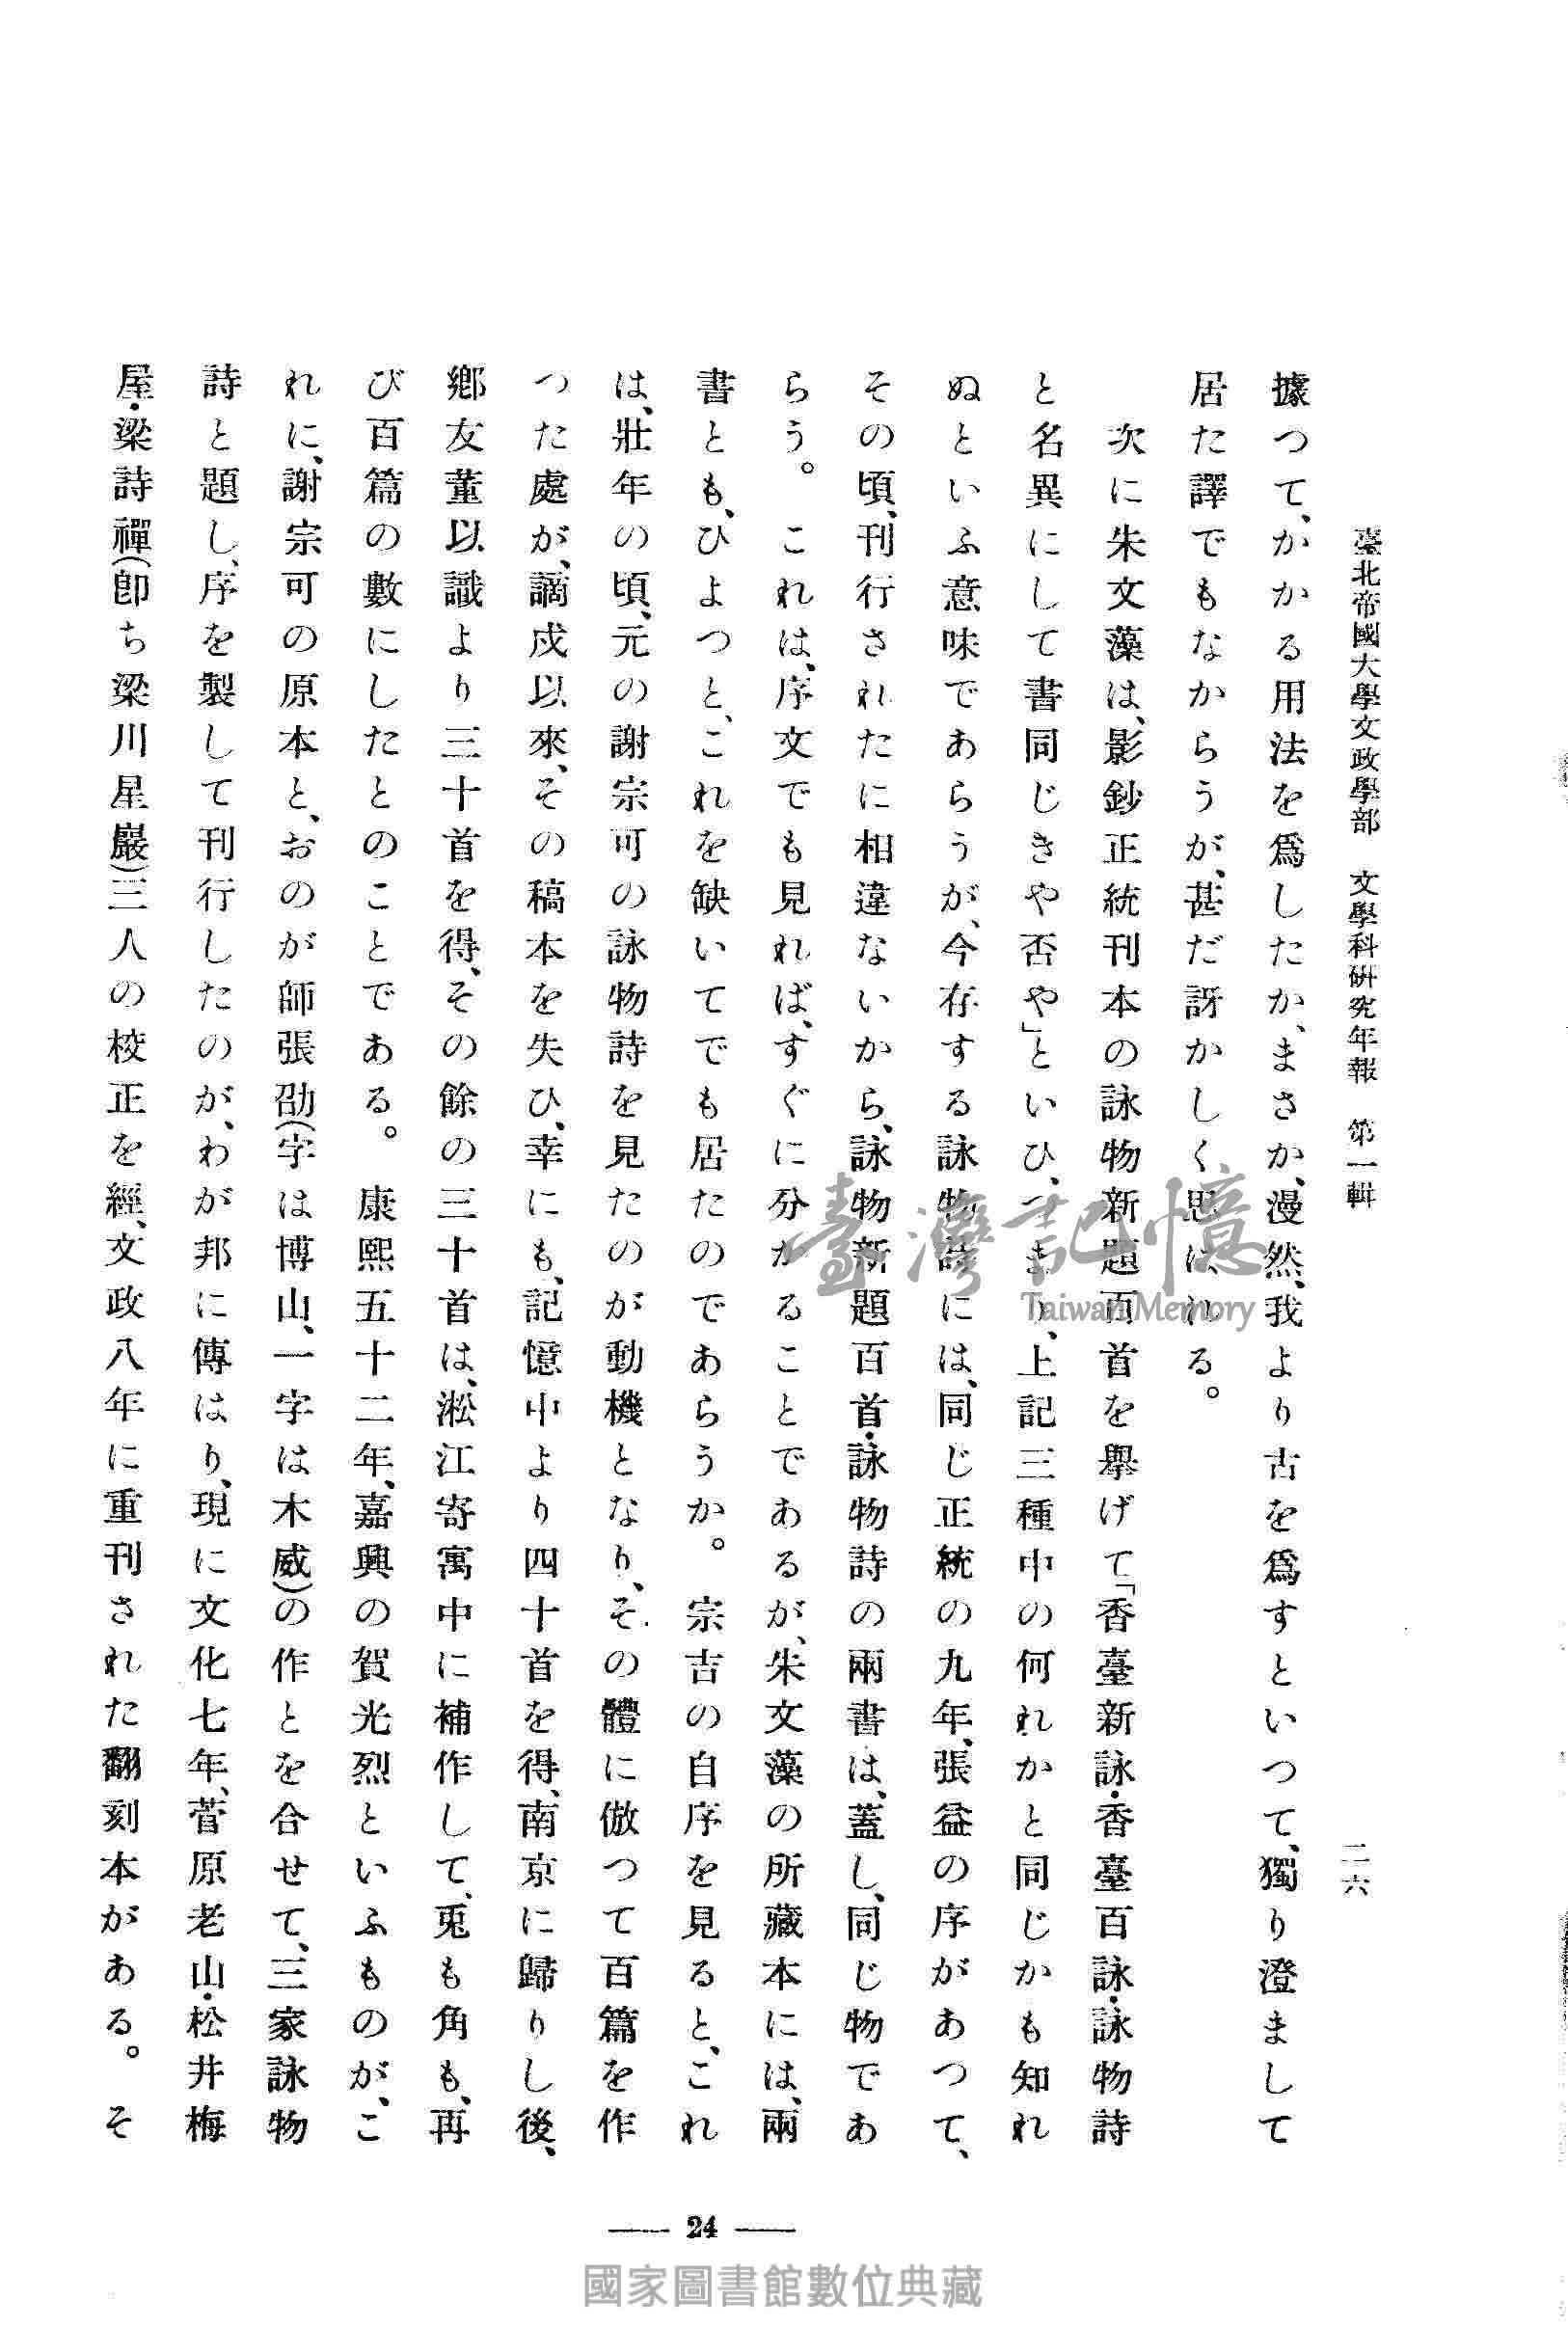 臺北帝國大學文政學部　文學科硏究年報　第一輯
二六
據つて、かかる用法を爲したか、まさか、漫然、我より古を爲すといつて、獨り澄まして
居た譯でもなからうが、甚だ訝かしく思はれる。
次に朱文藻は、影鈔正統刊本の詠物新題百首を擧げて「香臺新詠・香臺百詠・詠物詩
と名異にして書同じきや否や」といひ、つまり、上記三種中の何れかと同じかも知れ
ぬといふ意味であらうが、今存する詠物詩には、同じ正統の九年、張益の序があつて、
その頃、刊行されたに相違ないから、詠物新題百首・詠物詩の兩書は、蓋し、同じ物であ
らう。　これは、序文でも見れば、すぐに分かることであるが、朱文藻の所藏本には、兩
書とも、ひよつと、これを缺いてでも居たのであらうか。　宗吉の自序を見ると、これ
は、壯年の頃、元の謝宗可の詠物詩を見たのが動機となり、その體に倣つて百篇を作
つた處が、謫戍以來、その稿本を失ひ、幸にも、記憶中より四十首を得、南京に歸りし後、
鄕友董以識より三十首を得、その餘の三十首は、淞江寄寓中に補作して、兎も角も、再
び百篇の數にしたとのことである。　康熙五十二年、嘉興の賀光烈といふものが、こ
れに、謝宗可の原本と、おのが師張劭（字は博山、一字は木威）の作とを合せて、三家詠物
詩と題し、序を製して刊行したのが、わが邦に傳はり、現に文化七年、菅原老山・松井梅
屋・梁詩禪（卽ち梁川星巖）三人の校正を經、文政八年に重刊された翻刻本がある。　そ
— 24 —
臺灣記憶
Taiwan Memory
國家圖書館數位典藏